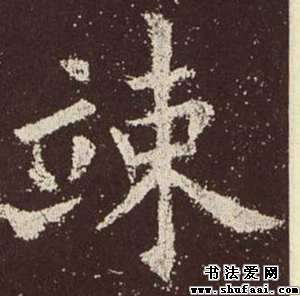 竦
书法爱网
www.shufaai.com